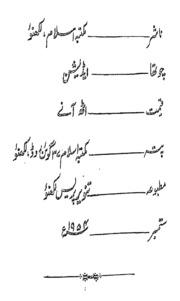 ناشر ــــــ مکتبہ اسلام، لکھنؤ
چوتھا ــــــ ایڈیشن
قیمت ــــــ آٹھ آنے
پتہ ــــــ مکتبہ اسلام ۳۷ گوئن روڈ، لکھنؤ
مطبوعہ ــــــ تنویر پریس لکھنؤ
ستمبر ــــــ ۱۹۵۴ء